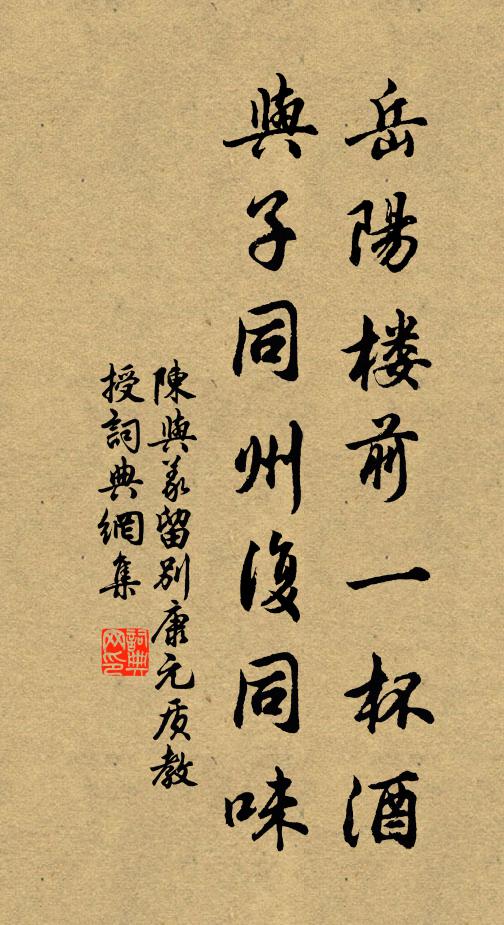 岳陽楼前一杯酒
與子同州復同味
陳與義留別康元质教
授詞典網集
詞典
网印